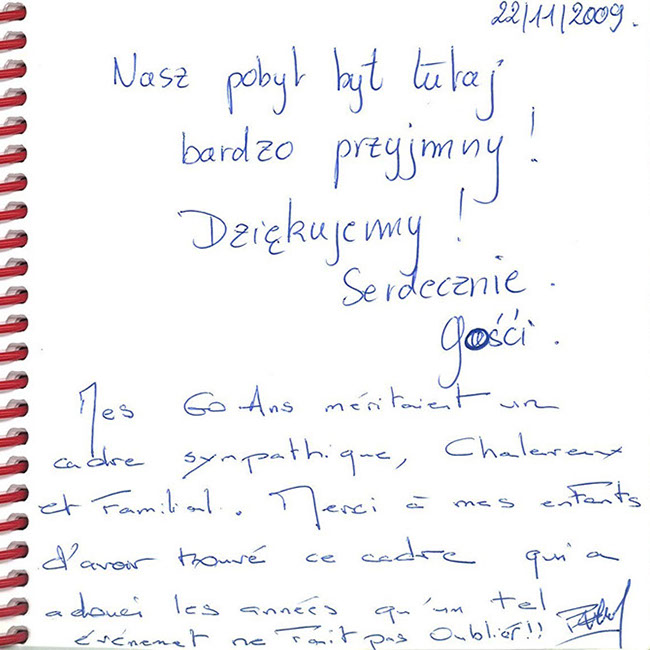 22/11/2009.
Nasz pobyt był tutaj
bardzo przyjmny!
Dziękujemy!
Serdecznie.
Gośći.
Mes 60 Ans méritaient un
cadre sympathique, Chaleureux
et Familial. Merci à mes enfants
d'avoir trouvé ce cadre qui a
adouci les années qu'un tel
événemet ne Fait pas Oublier!!